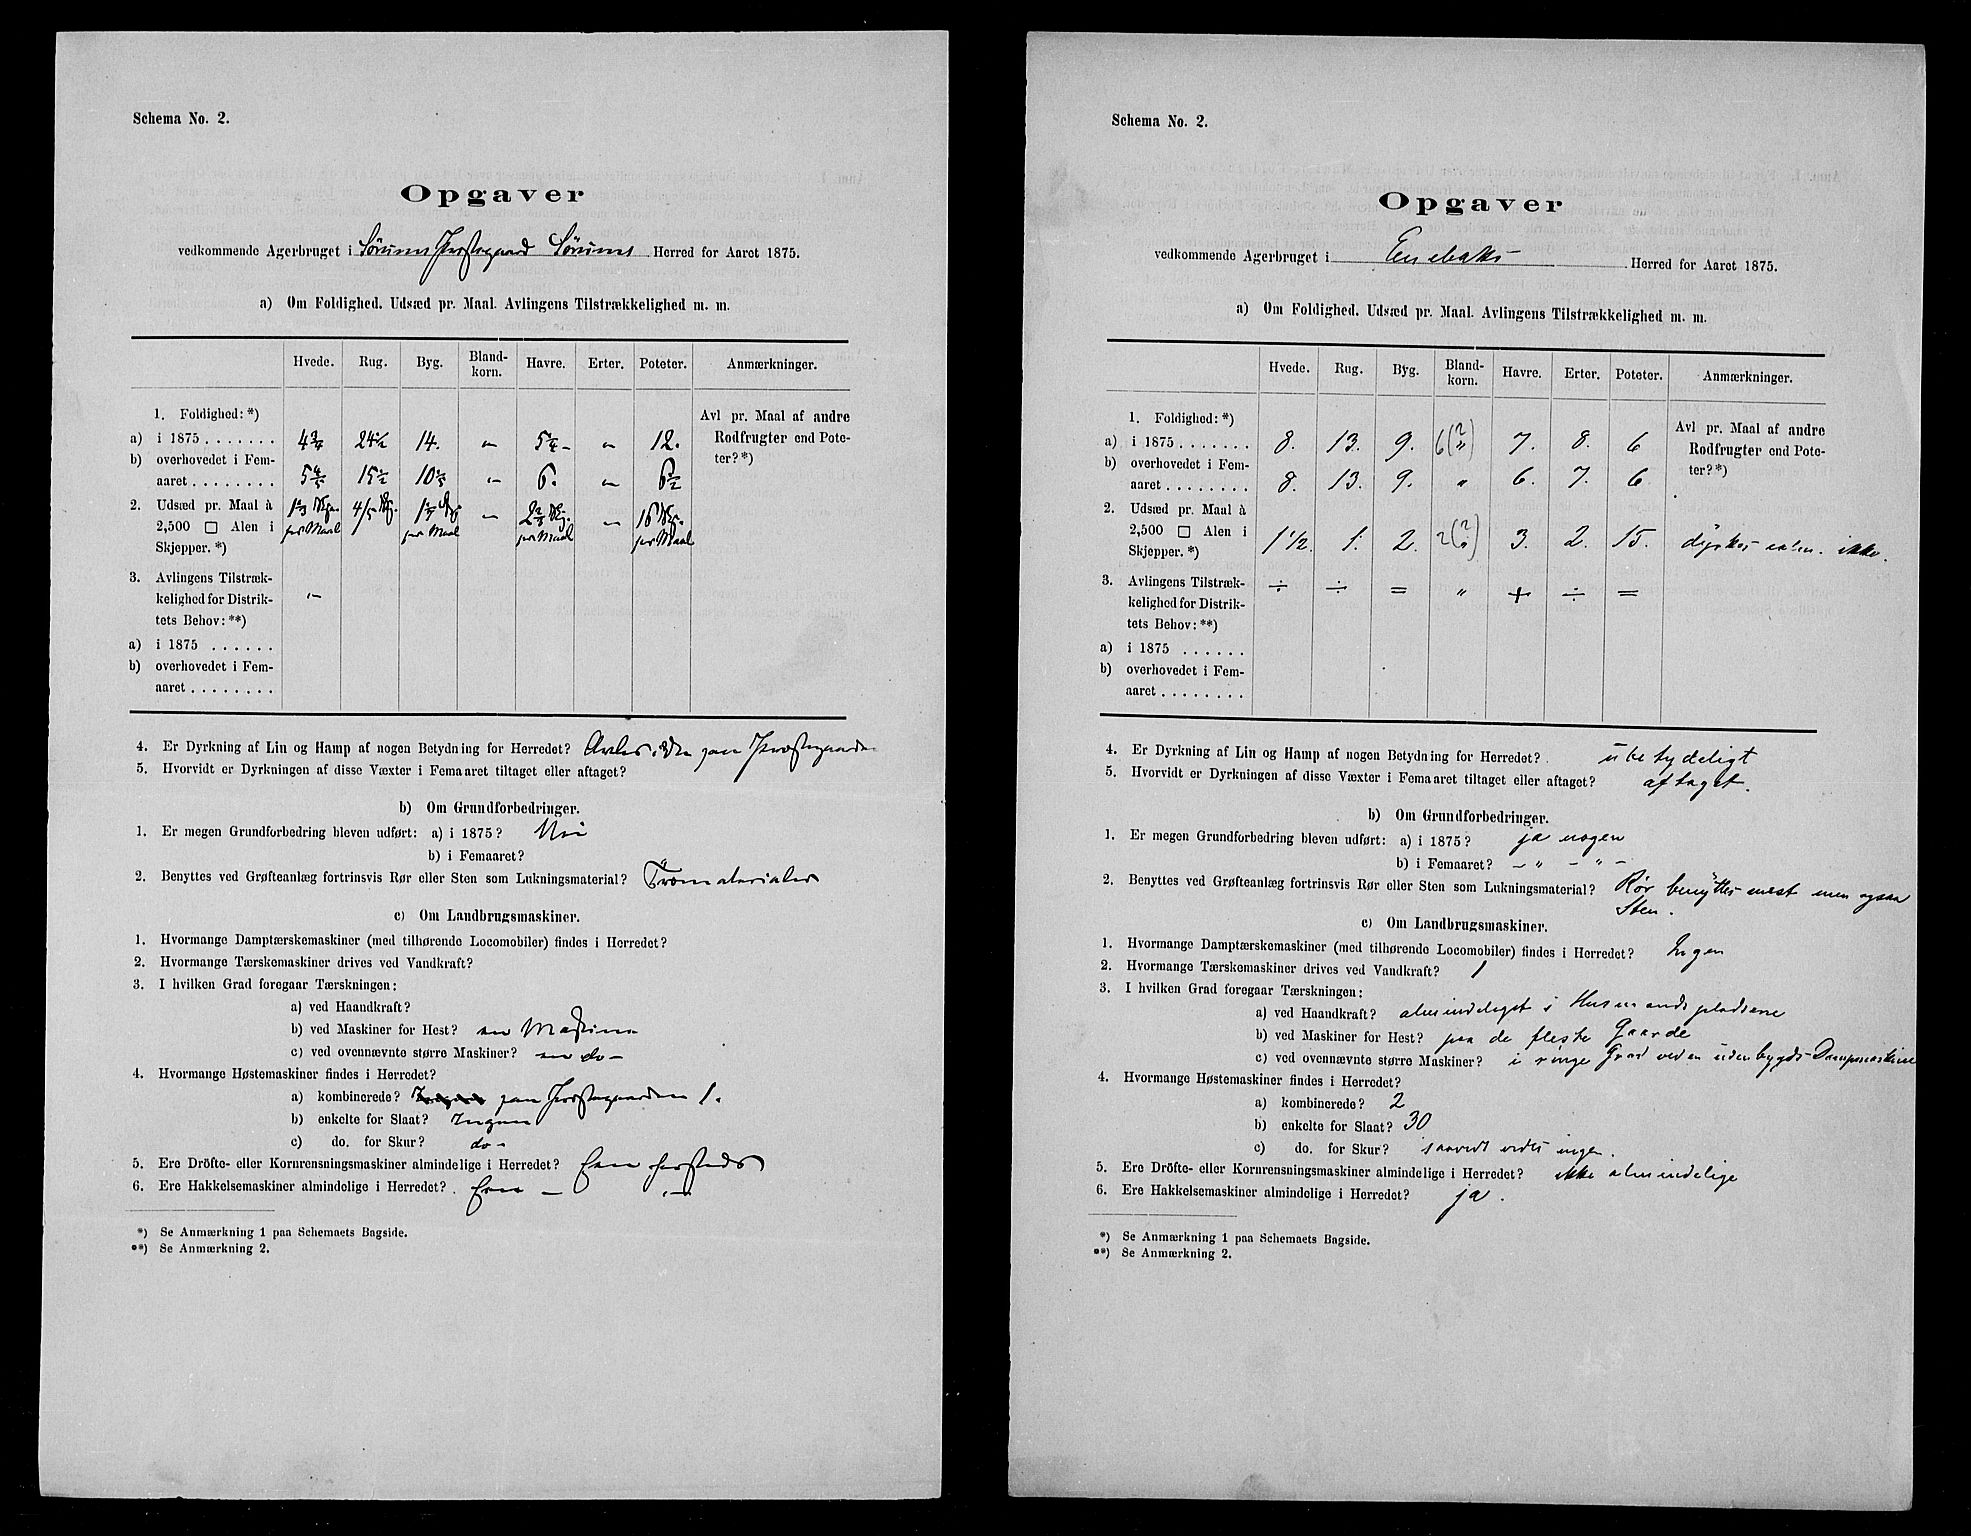 Schema No. 2.
Opgaver
vedkommende Agerbruget i Sørums Præstegaard Sørums Herred for Aaret 1875.
a) Om Foldighed. Udsæd pr. Maal. Avlingens Tilstrækkelighed m. m.
Hvede. Rug. Byg. Bland-korn. Havre. Erter. Poteter. Anmærkninger.
1. Foldighed: *) Avl pr. Maal af andre
a) i 1875 . . . . . . . 24 1/2 14. " " 12. Rodfrugter end Pote-
b) overhovedet i Fem- ter? *)
aaret . . . . . . . . " 6. " 6 1/2
2. Udsæd pr. Maal à 4/5
2,500 □ Alen i pr Maal pr Maal " pr Maal " pr Maal
Skjepper. *)
3. Avlingens Tilstræk-
kelighed for Distrik- "
tets Behov: **)
a) i 1875 . . . . . .
b) overhovedet i Fem-
aaret . . . . . . . .
4. Er Dyrkning af Lin og Hamp af nogen Betydning for Herredet? Avles ikke paa Præstegaarden
5. Hvorvidt er Dyrkningen af disse Væxter i Femaaret tiltaget eller aftaget?
b) Om Grundforbedringer.
1. Er megen Grundforbedring bleven udført: a) i 1875? Nei
b) i Femaaret? "
2. Benyttes ved Grøfteanlæg fortrinsvis Rør eller Sten som Lukningsmaterial? Træmaterialer
c) Om Landbrugsmaskiner.
1. Hvormange Damptærskemaskiner (med tilhørende Locomobiler) findes i Herredet?
2. Hvormange Tærskemaskiner drives ved Vandkraft?
3. I hvilken Grad foregaar Tærskningen:
a) ved Haandkraft?
b) ved Maskiner for Hest? en Maskine
c) ved ovennævnte større Maskiner? en do -
4. Hvormange Høstemaskiner findes i Herredet?
a) kombinerede? paa Præstegaarden 1.
b) enkelte for Slaat? Ingen
c) do. for Skur? do -
5. Ere Dröfte- eller Kornrensningsmaskiner almindelige i Herredet? Een
6. Ere Hakkelsemaskiner almindelige i Herredet? Een - " -
*) Se Anmærkning 1 paa Schemaets Bagside.
**) Se Anmærkning 2.
Schema No. 2.
Opgaver
vedkommende Agerbruget i Enebaks Herred for Aaret 1875.
a) Om Foldighed. Udsæd pr. Maal. Avlingens Tilstrækkelighed m. m.
Hvede. Rug. Byg. Bland-korn. Havre. Erter. Poteter. Anmærkninger.
1. Foldighed: *) Avl pr. Maal af andre
a) i 1875 . . . . . . . 8. 13. 9. 6 (?) 7. 8. 6 Rodfrugter end Pote-
b) overhovedet i Fem- ter? *)
aaret . . . . . . . . 8. 13. 9. " 6. 7. 6
2. Udsæd pr. Maal à
2,500 □ Alen i 1 1/2. 1. 2. 2 (?) 3. 2. 15. dyrkes ikke.
Skjepper. *)
3. Avlingens Tilstræk- ÷ ÷ = " + ÷ =
kelighed for Distrik-
tets Behov: **)
a) i 1875 . . . . . .
b) overhovedet i Fem-
aaret . . . . . . . .
4. Er Dyrkning af Lin og Hamp af nogen Betydning for Herredet? ubetydeligt
5. Hvorvidt er Dyrkningen af disse Væxter i Femaaret tiltaget eller aftaget? aftaget.
b) Om Grundforbedringer.
1. Er megen Grundforbedring bleven udført: a) i 1875? ja nogen
b) i Femaaret? - " - " -
2. Benyttes ved Grøfteanlæg fortrinsvis Rør eller Sten som Lukningsmaterial? Rør benyttes mest men ogsaa
Sten.
c) Om Landbrugsmaskiner.
1. Hvormange Damptærskemaskiner (med tilhørende Locomobiler) findes i Herredet? Ingen
2. Hvormange Tærskemaskiner drives ved Vandkraft? 1
3. I hvilken Grad foregaar Tærskningen:
a) ved Haandkraft? almindeligst i Husmandspladsene
b) ved Maskiner for Hest? paa de fleste Gaarde
c) ved ovennævnte større Maskiner? i ringe Grad ved en udenbygds Dampmaskine
4. Hvormange Høstemaskiner findes i Herredet?
a) kombinerede? 2
b) enkelte for Slaat? 30
c) do. for Skur? saavidt vides ingen.
5. Ere Dröfte- eller Kornrensningsmaskiner almindelige i Herredet? ikke almindelige
6. Ere Hakkelsemaskiner almindelige i Herredet? ja.
*) Se Anmærkning 1 paa Schemaets Bagside.
**) Se Anmærkning 2.